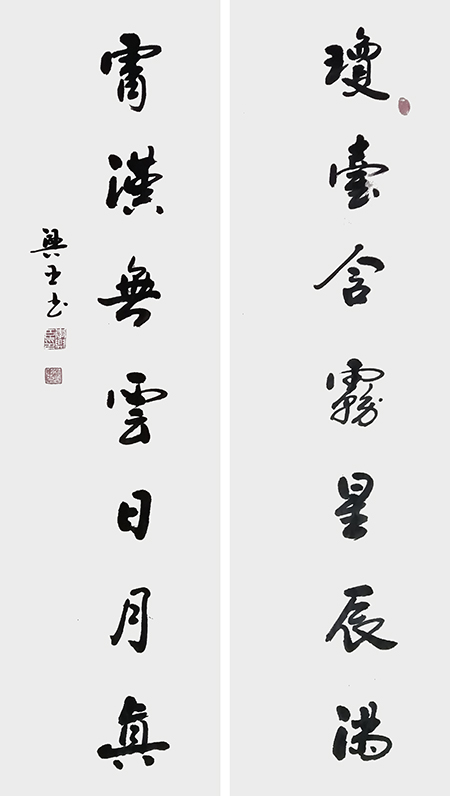 瓊臺含霧星辰滿
霄漢無雲日月真
书